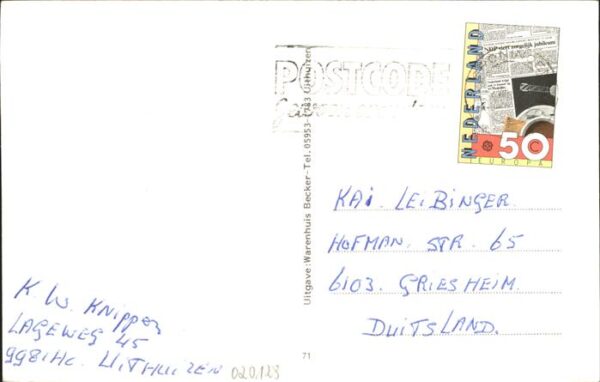 POSTCODE
NEDERLAND
50 C
EUROPA
Uitgave: Warenhuis Becker - Tel. 05953-1783 Uithuizen
KAI. LEIBINGER.
HOFMAN. STR. 65
6103. GRIESHEIM.
DUITSLAND.
K. W. KNIPPER
LAGEWEG 45
9981HC. UITHUIZEN
020.123
71